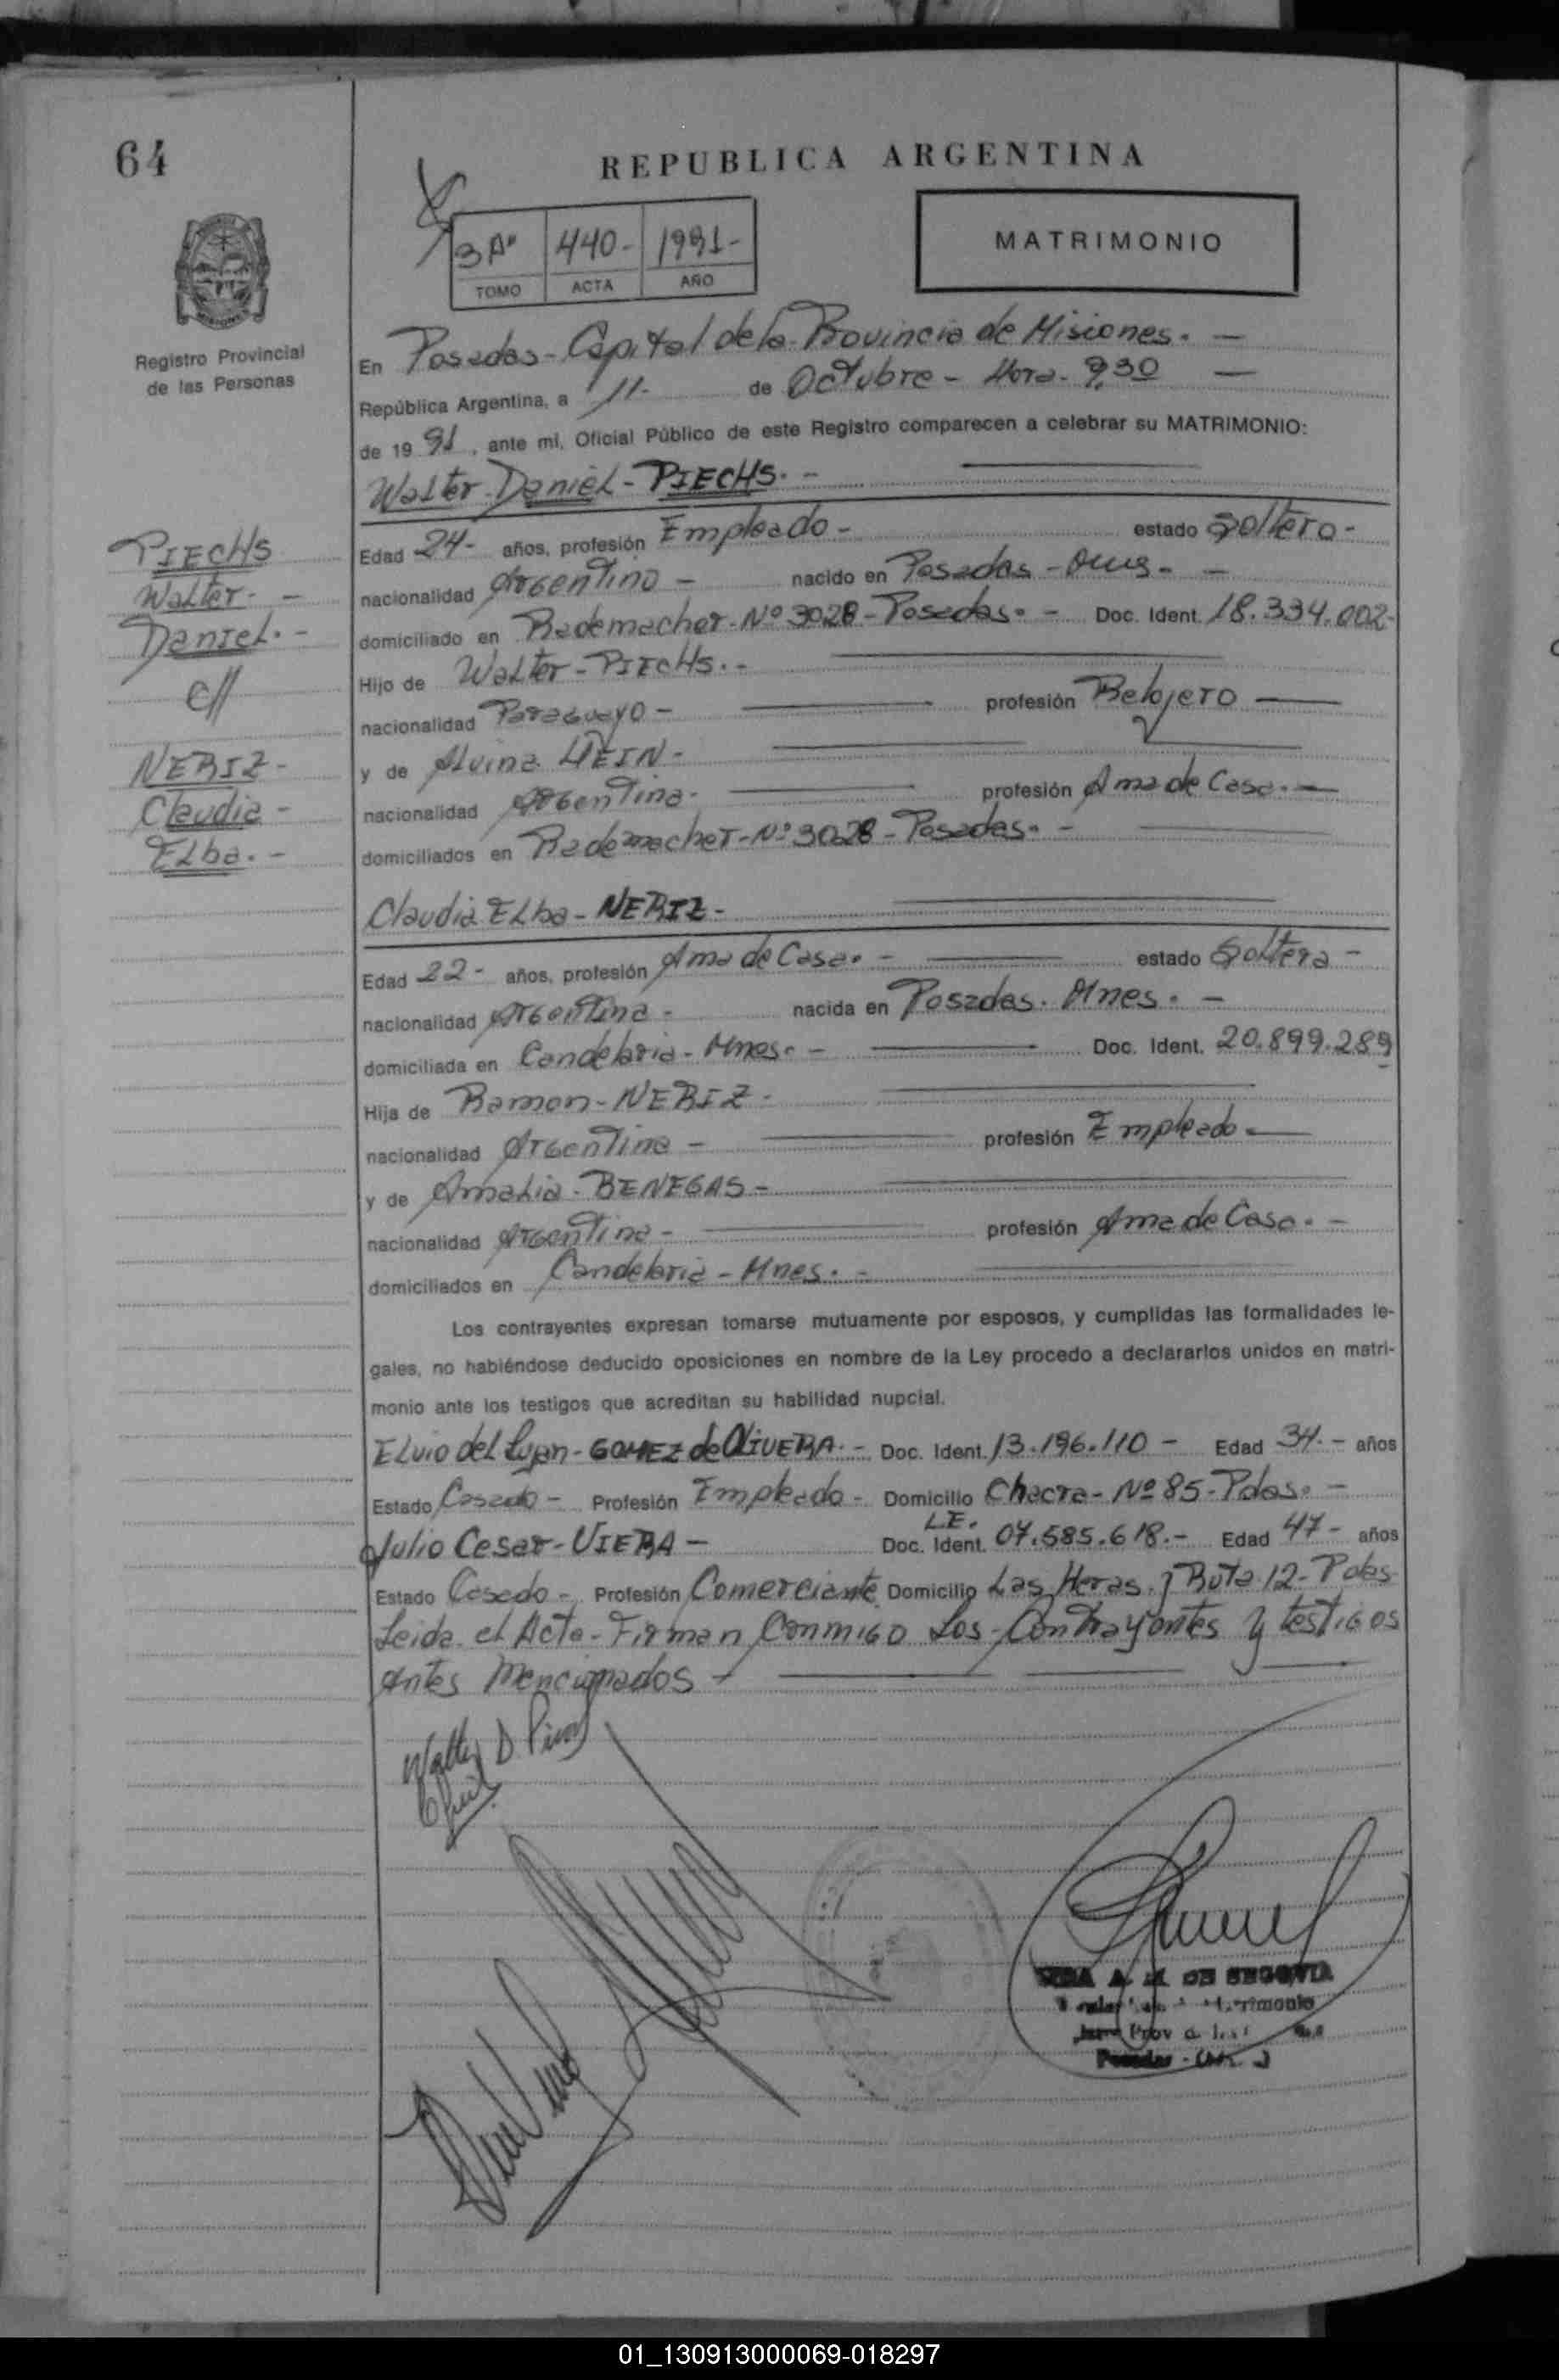 64
REPUBLICA ARGENTINA
3Aº 440- 1991-
TOMO ACTA AÑO
MATRIMONIO
Registro Provincial
de las Personas
En Posadas - Capital de la Provincia de Misiones. -
República Argentina, a 11- de Octubre - Hora - 9,30 -
de 19 91, ante mi, Oficial Público de este Registro comparecen a celebrar su MATRIMONIO:
Walter Daniel - PIECHS. -
PIECHS
Walter. -
Daniel. -
c//
NERIZ -
Claudia -
Elba. -
Edad 24- años, profesión Empleado - estado Soltero -
nacionalidad Argentino - nacido en Posadas -
domiciliado en Rademacher - Nº 3028 - Posadas. - Doc. Ident. 18.334.002-
Hijo de Walter - PIECHS. -
nacionalidad Paraguayo - profesión Relojero
y de Alvina HEIN -
nacionalidad Argentina - profesión Ama de Casa. -
domiciliados en Rademacher - Nº 3028 - Posadas. -
Claudia Elba - NERIZ -
Edad 22- años, profesión Ama de Casa. - estado Soltera -
nacionalidad Argentina - nacida en Posadas. Mnes. -
domiciliada en Candelaria - Mnes. - Doc. Ident. 20.899.289
Hija de Ramon - NERIZ -
nacionalidad Argentina - profesión Empleado -
y de Amalia - BENEGAS -
nacionalidad Argentina - profesión Ama de Casa. -
domiciliados en Candelaria - Mnes. -
Los contrayentes expresan tomarse mutuamente por esposos, y cumplidas las formalidades le-
gales, no habiéndose deducido oposiciones en nombre de la Ley procedo a declararlos unidos en matri-
monio ante los testigos que acreditan su habilidad nupcial.
Elvio del Lujan - GOMEZ de OLIVERA. - Doc. Ident. 13.196.110 - Edad 34 - años
Estado Casado - Profesión Empleado - Domicilio Chacra - Nº 85 - Pdas. -
L.E.
Julio Cesar - VIERA - Doc. Ident. 07.585.618. - Edad 47 - años
Estado Casado - Profesión Comerciante Domicilio Las Heras y Ruta 12 - Pdas
Leida el Acta - Firman Conmigo Los - Contrayentes y testigos
antes Mencionados -
Walter D.
A. M. DE SEGOVIA
Matrimonio
Prov
Posadas
01_130913000069-018297